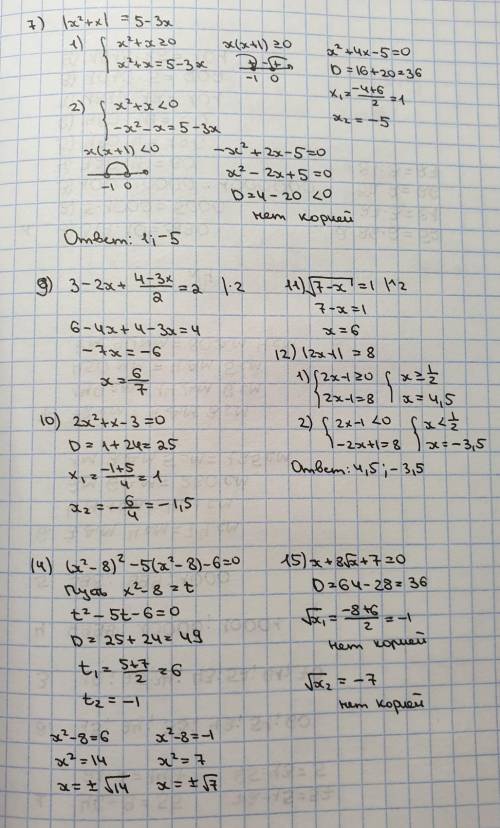 7) |x²+x| = 5-3x
1) { x²+x≥0
x²+x=5-3x
x(x+1)≥0
+ - +
-1 0
x²+4x-5=0
D=16+20=36
x₁=(-4+6)/2=1
x₂=-5
2) { x²+x<0
-x²-x=5-3x
x(x+1)<0
-1 0
-x²+2x-5=0
x²-2x+5=0
D=4-20<0
нет корней
Ответ: 1; -5
9) 3-2x+(4-3x)/2=2 |·2
6-4x+4-3x=4
-7x=-6
x=6/7
10) 2x²+x-3=0
D=1+24=25
x₁=(-1+5)/4=1
x₂=-6/4=-1,5
11) √(7-x)=1 |^2
7-x=1
x=6
12) |2x-1|=8
1) { 2x-1≥0 { x≥1/2
2x-1=8 x=4,5
2) { 2x-1<0 { x<1/2
-2x+1=8 x=-3,5
Ответ: 4,5; -3,5
14) (x²-8)²-5(x²-8)-6=0
Пусть x²-8=t
t²-5t-6=0
D=25+24=49
t₁=(5+7)/2=6
t₂=-1
x²-8=6 x²-8=-1
x²=14 x²=7
x=±√14 x=±√7
15) x+8√x+7=0
D=64-28=36
√x₁=(-8+6)/2=-1
нет корней
√x₂=-7
нет корней